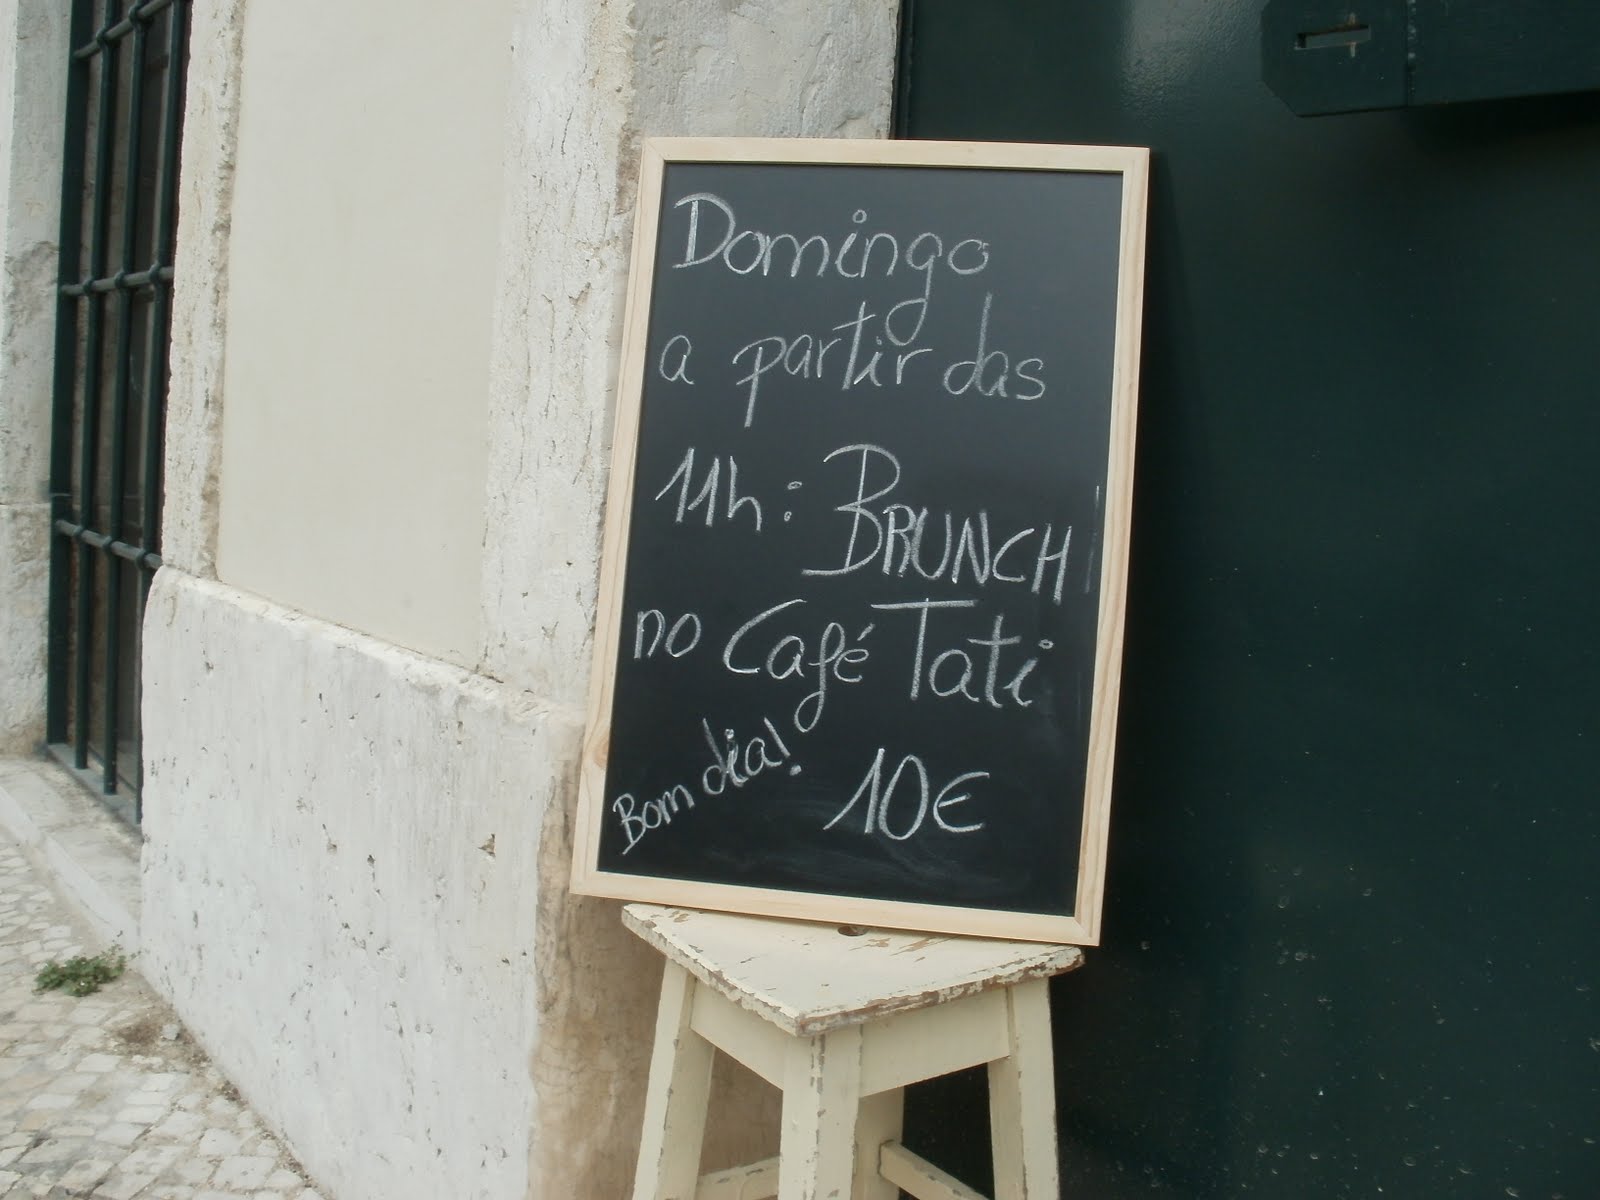 Domingo
a partir das
11h: BRUNCH
no Café Tati
Bom dia! 10€